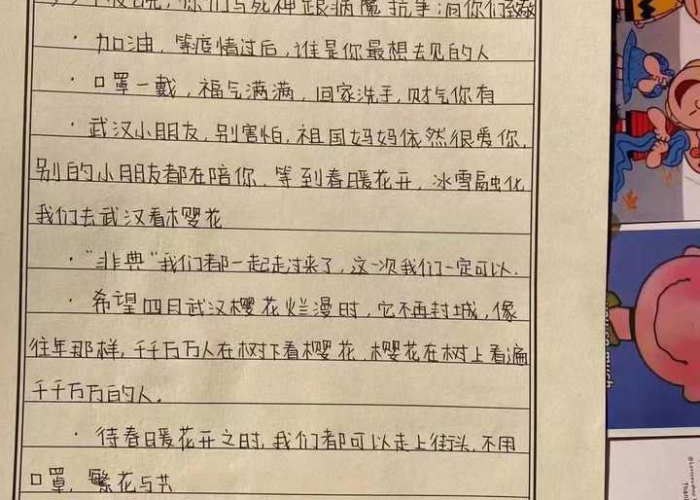 你们与死神跟病魔抗争;向你们致敬
· 加油,等疫情过后,谁是你最想去见的人
· 口罩一戴,福气满满,回家洗手,财气你有
· 武汉小朋友,别害怕,祖国妈妈依然很爱你,
别的小朋友都在陪你、等到春暖花开,冰雪融化
我们去武汉看樱花
· “非典”我们都一起走过来了,这一次我们一定可以.
· 希望四月武汉樱花烂漫时,它不再封城,像
往年那样,千千万万人在树下看樱花,樱花在树上看遍
千千万万的人.
· 待春暖花开之时,我们都可以走上街头,不用
口罩,繁花与共